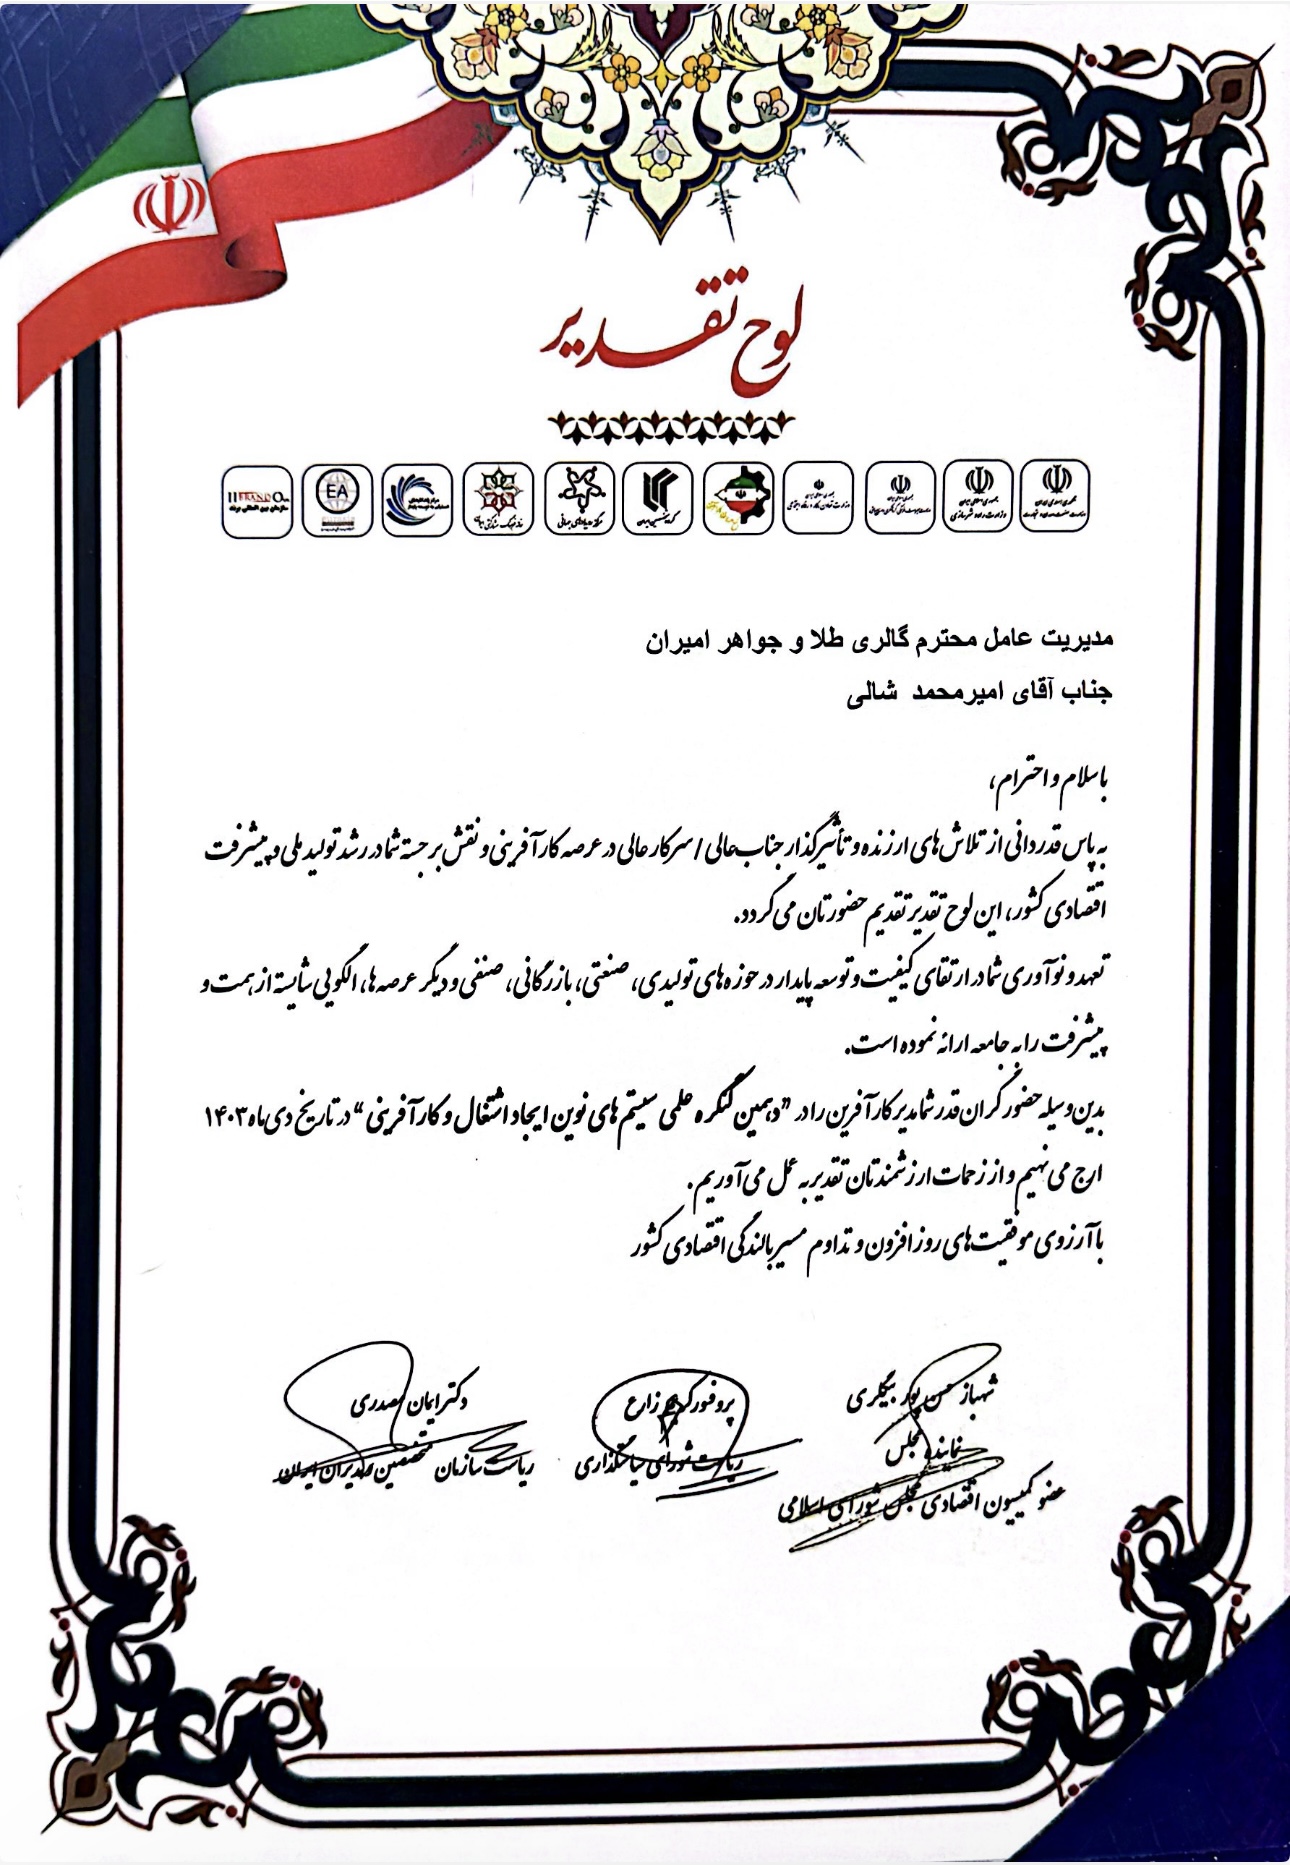 لوح تقدیر
EA
مدیریت عامل محترم گالری طلا و جواهر امیران
جناب آقای امیرمحمد شالی
باسلام و احترام،
به پاس قدردانی از تلاش های ارزنده و تأثیرگذار جناب عالی / سرکار عالی در عرصه کارآفرینی و نقش برجسته شما در رشد تولید ملی و پیشرفت
اقتصادی کشور، این لوح تقدیر تقدیم حضورتان می گردد.
تعهد و نوآوری شما در ارتقای کیفیت و توسعه پایدار در حوزه های تولیدی، صنعتی، بازرگانی، صنفی و دیگر عرصه ها، الگویی شایسته از همت و
پیشرفت را به جامعه ارائه نموده است.
بدین وسیله حضور گران قدر شما مدیر کارآفرین را در "دهمین کنگره علمی سیستم های نوین ایجاد اشتغال و کارآفرینی" در تاریخ دی ماه ۱۴۰۳
ارج می نهیم و از زحمات ارزشمندتان تقدیر به عمل می آوریم.
با آرزوی موفقیت های روزافزون و تداوم مسیر بالندگی اقتصادی کشور
شهباز حسن پور بیگلری
نماینده مجلس
عضو کمیسیون اقتصادی مجلس شورای اسلامی
پروفسور زارع
ریاست شورای سیاستگذاری
دکتر ایمان صدری
ریاست سازمان متخصصین و مدیران ایران